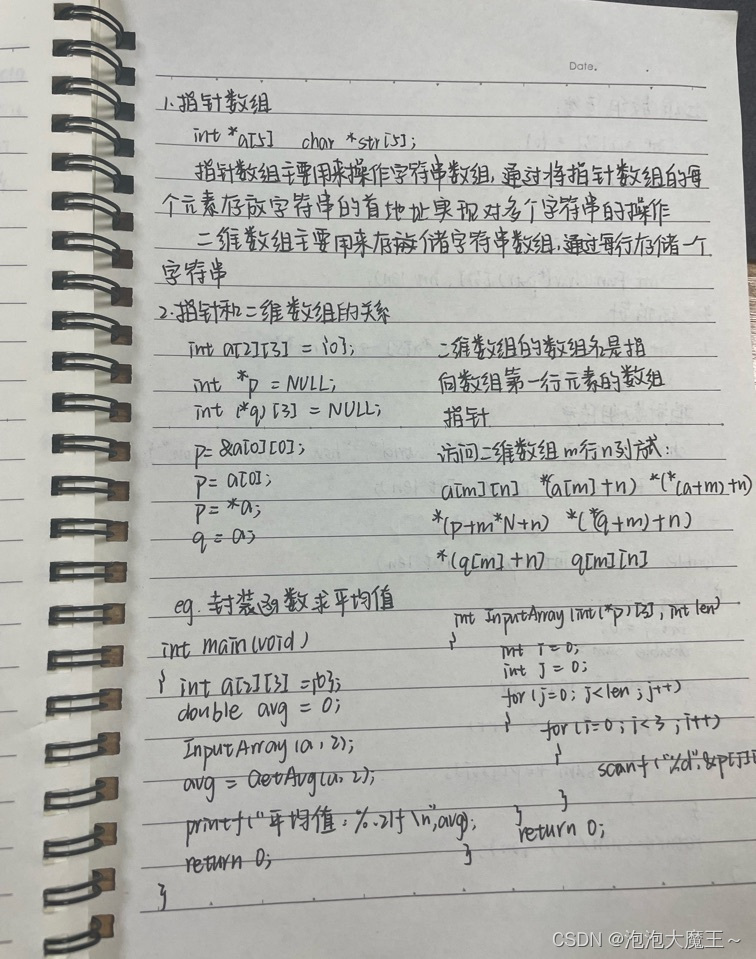 Date.
1.指针数组
int *a[5]   char *str[5];
指针数组主要用来操作字符串数组,通过将指针数组的每
个元素存放字符串的首地址实现对多个字符串的操作
二维数组主要用来存储字符串数组,通过每行存储一个
字符串
2.指针和二维数组的关系
int a[2][3] = {0};
int *p = NULL;
int (*q)[3] = NULL;
p= &a[0][0];
p= a[0];
p= *a;
q = a;
二维数组的数组名是指
向数组第一行元素的数组
指针
访问二维数组m行n列方式:
a[m][n]  *(a[m]+n)  *(*(a+m)+n)
*(p+m*N+n)  *(*(q+m)+n)
*(q[m]+n)   q[m][n]
eg. 封装函数求平均值
int main(void)
{ int a[2][3] ={0};
double avg = 0;
InputArray(a, 2);
avg = GetAvg(a, 2);
printf("平均值: %.2lf \n",avg);
return 0;
}
int InputArray(int(*p)[3], int len)
{
int i = 0;
int j = 0;
for (j=0; j<len ; j++)
{ for(i=0; i<3 ; i++)
{
scanf("%d",&p[j][i
}
}
return 0;
}
CSDN @泡泡大魔王~